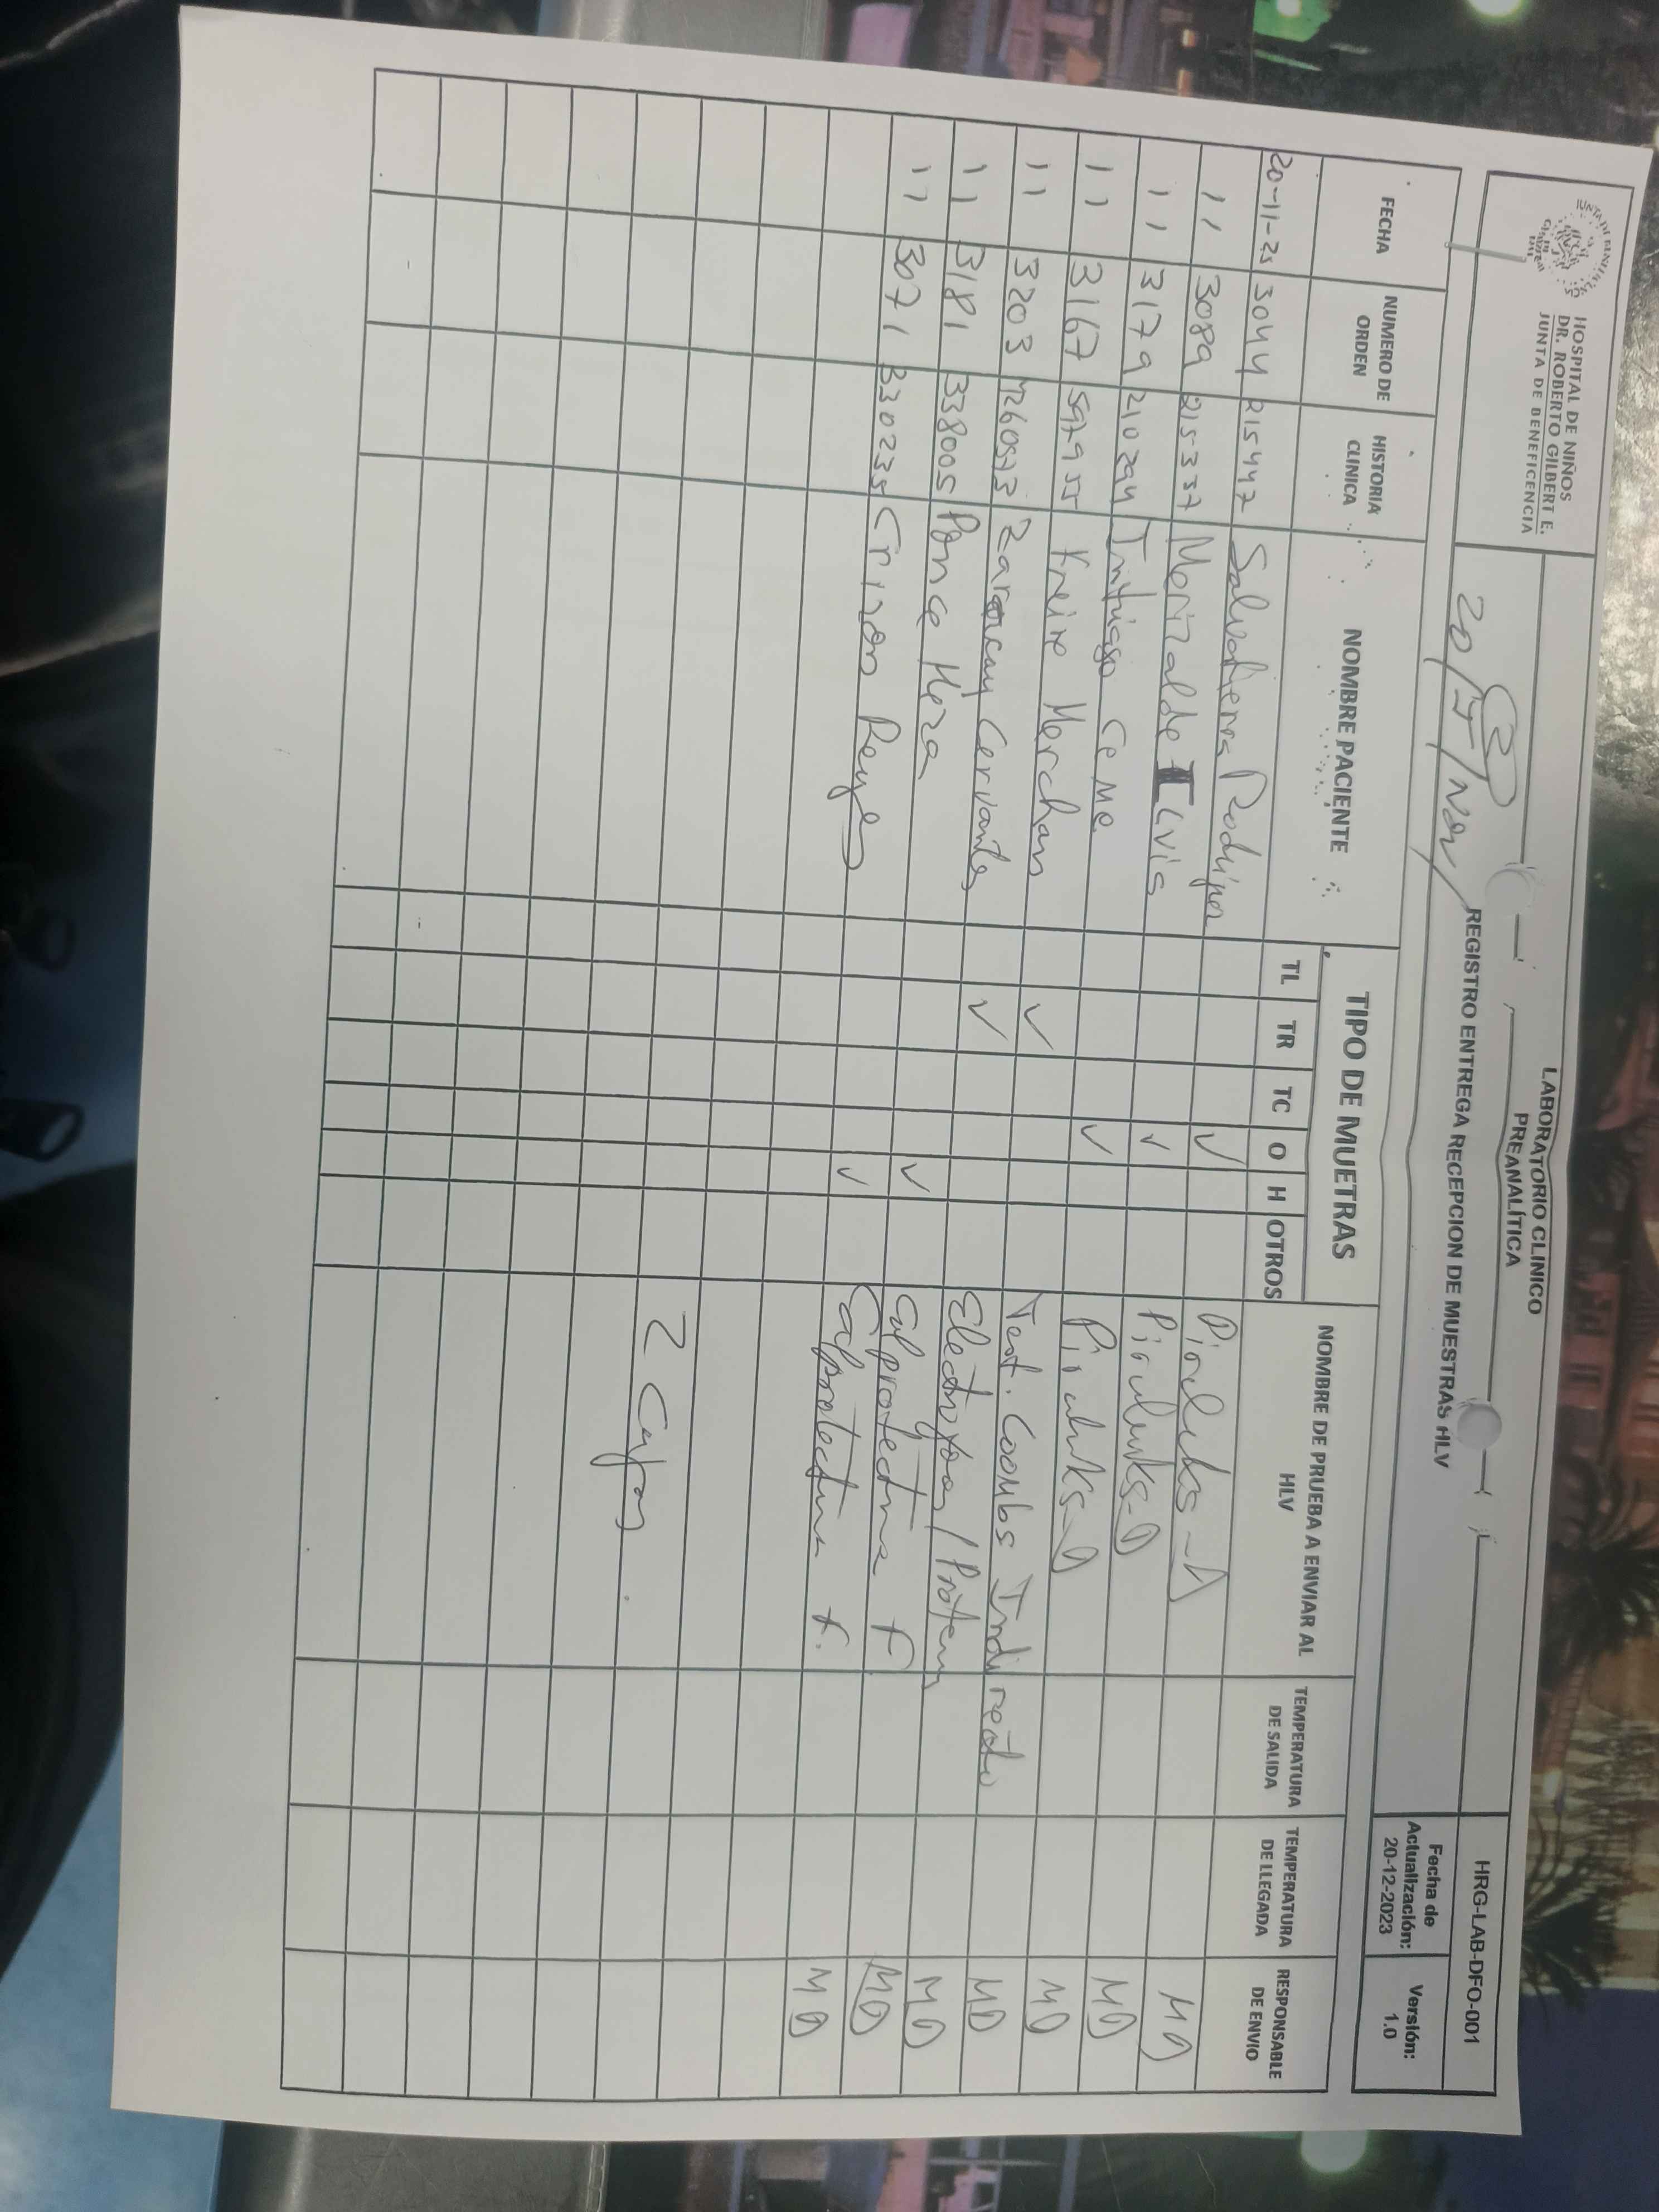 HOSPITAL DE NIÑOS
DR. ROBERTO GILBERT E.
JUNTA DE BENEFICENCIA
LABORATORIO CLINICO
PREANALÍTICA
HRG-LAB-DFO-001
20/ /Nov/
REGISTRO ENTREGA RECEPCION DE MUESTRAS HLV
Fecha de Actualización: 20-12-2023
Versión: 1.0
FECHA NUMERO DE ORDEN HISTORIA CLINICA NOMBRE PACIENTE TIPO DE MUETRAS NOMBRE DE PRUEBA A ENVIAR AL HLV TEMPERATURA DE SALIDA TEMPERATURA DE LLEGADA RESPONSABLE DE ENVIO
TL TR TC O H OTROS
20-11-25 3044 215447 Salvatierra ✓ MD
11 3089 215337 Merizalde ✓ MD
11 3179 210294 Intriago Ceme ✓ MD
11 3167 Freire Merchan ✓ Test. Coombs Indirecto MD
11 3203 Zarancay Cervantes ✓ MD
11 3181 338005 Ponce Meza ✓ Calprotectina F MD
11 3071 330235 Crizon Reyes ✓ Calprotectina F. MD
2 Cajas.